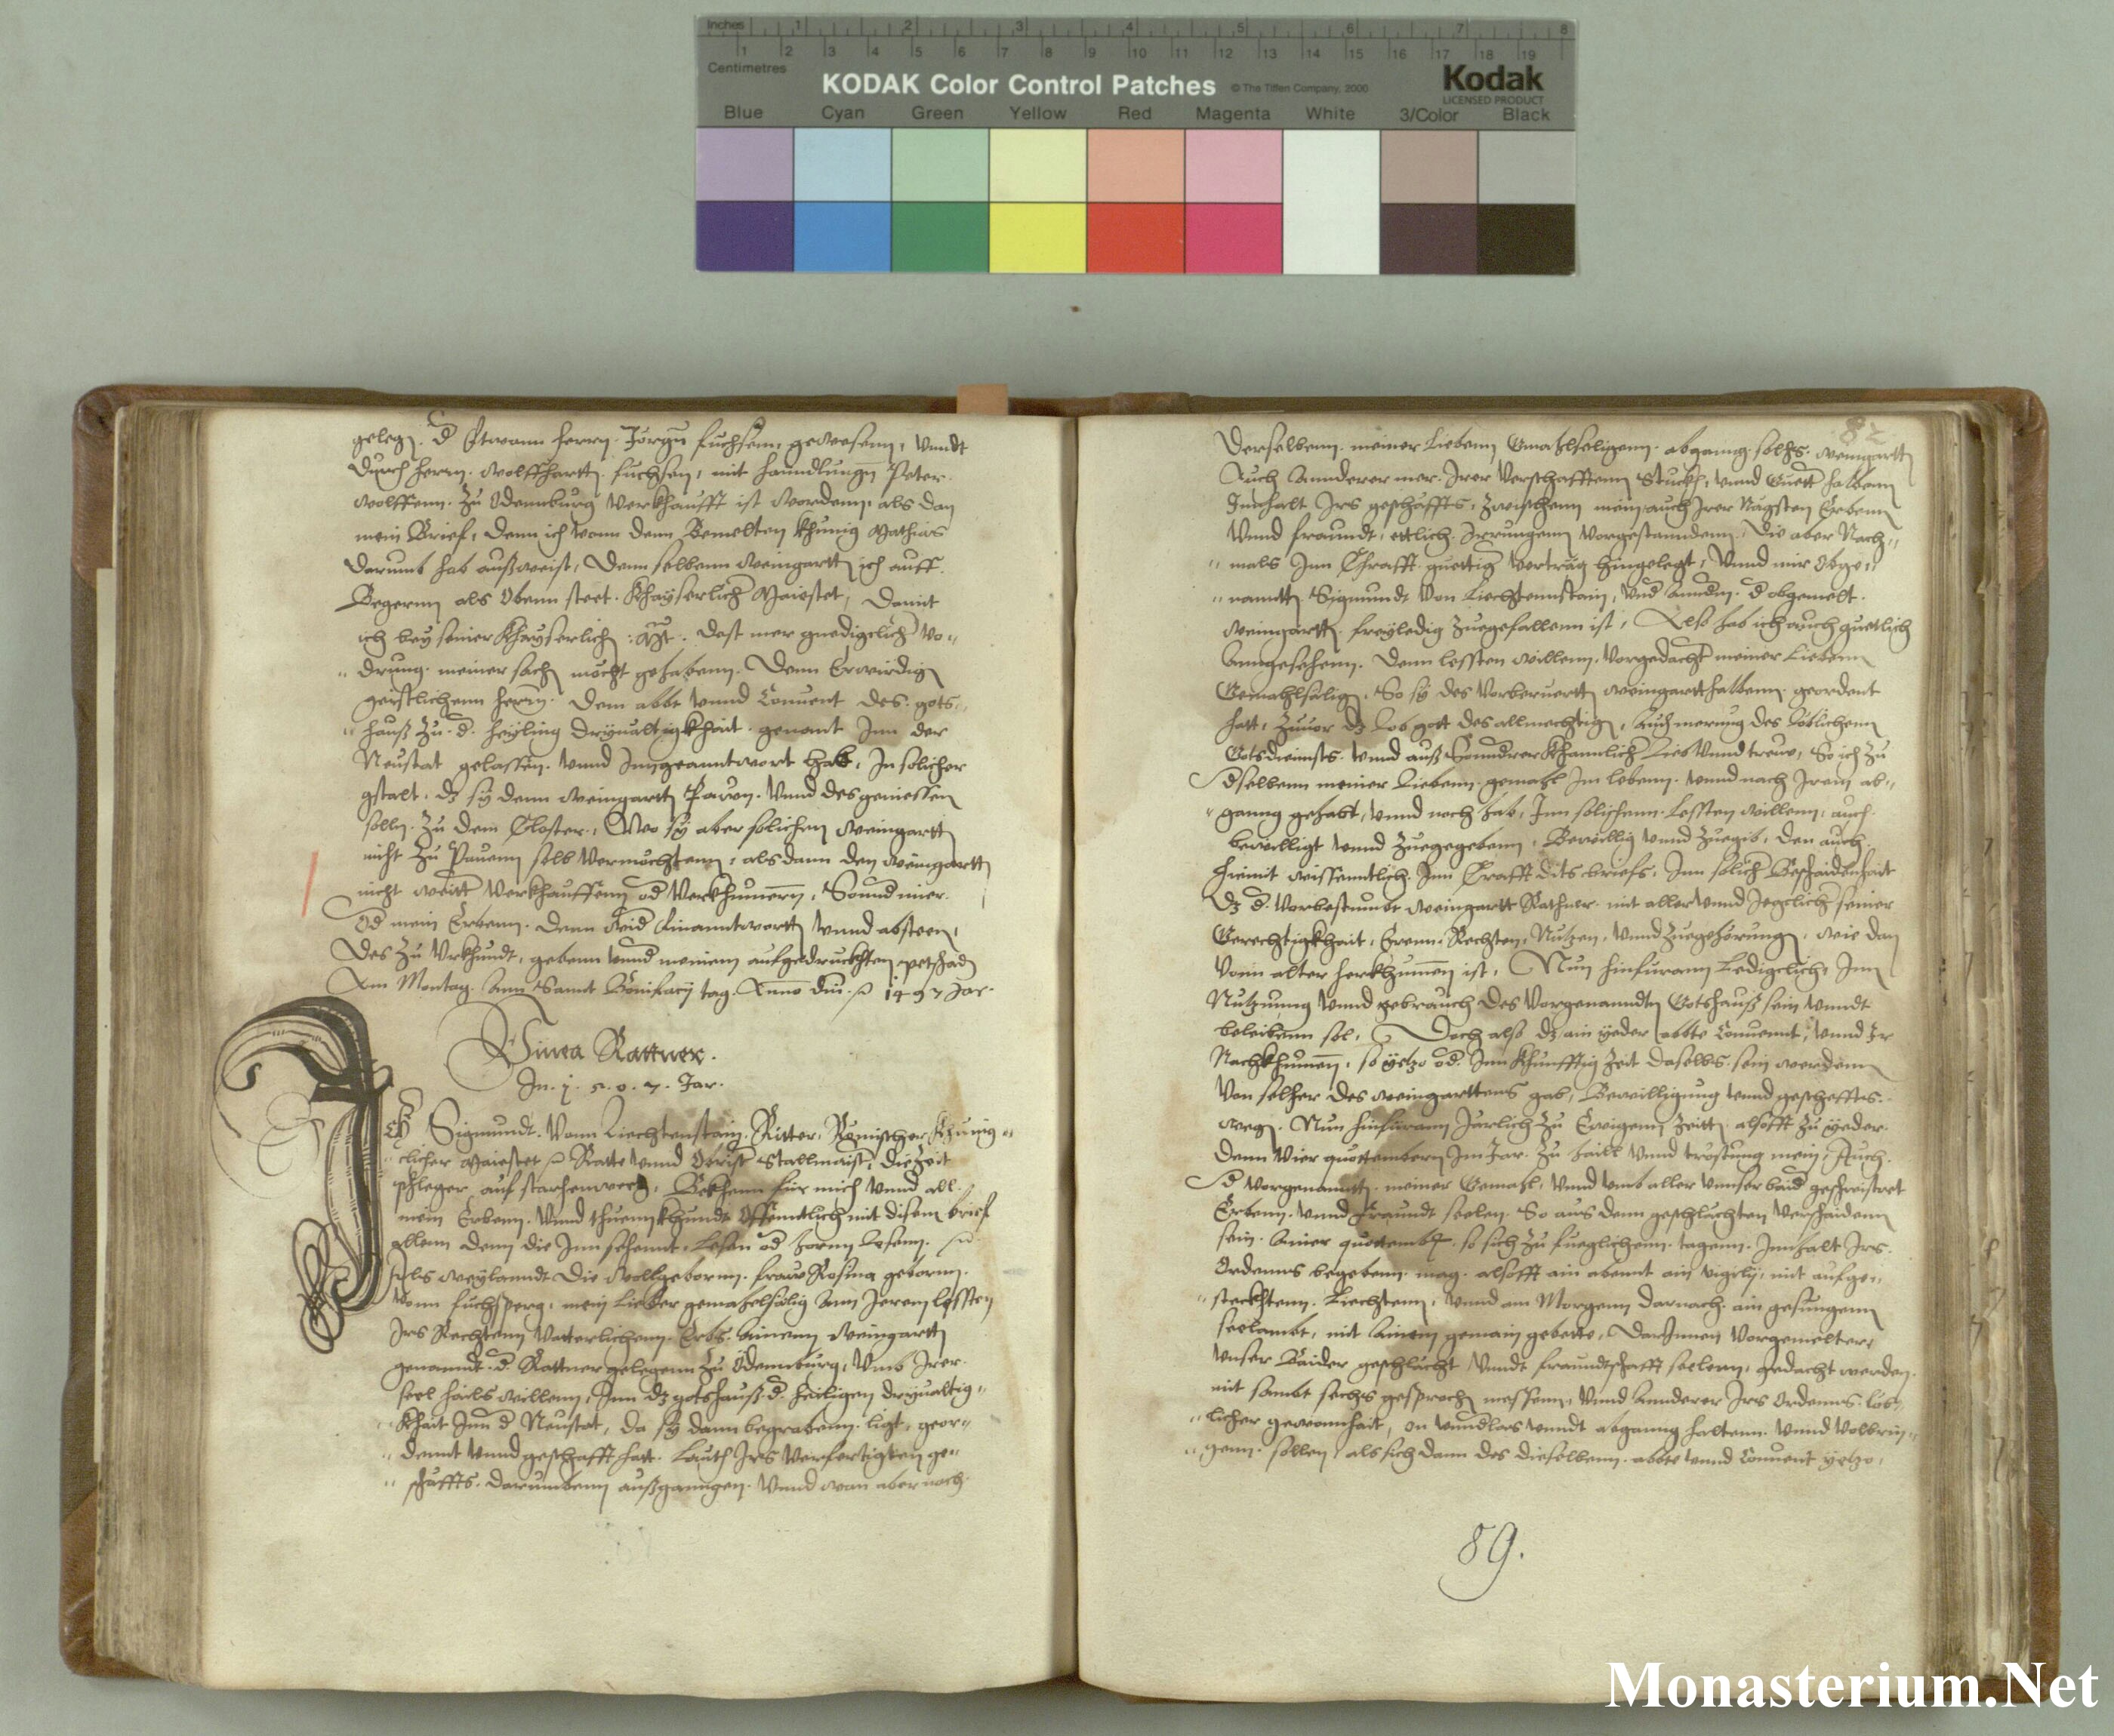 Inches 1 2 3 4 5 6 7 8
1 2 3 4 5 6 7 8 9 10 11 12 13 14 15 16 17 18 19
Centimetres
KODAK Color Control Patches © The Tiffen Company, 2000 Kodak
LICENSED PRODUCT
Blue Cyan Green Yellow Red Magenta White 3/Color Black
gelegn. d Etwann herrn. Jorgn fuchsenn gewesenn, vnndt
durch herrn. Wolffhartn fuchsen, mit hanndlungn Peter
Wolffenn. Zu Odennburg verkhaufft ist wordenn, als dan
mein Brief, denn ich vonn denn Bemelten khunig Mathias
darumb hab außweist, denn selbenn Weingartn ich auff
Begernn als Obenn steet. Khayserlich Maiestet, damit
ich bey seiner Khayserlich Mt. dest mer gnedigclich vo„
„drung meiner sach mocht gehabenn. Denn Erwirdign
geistlichenn herrn. Dem abbt vnnd Conuent des gots„
„hauß Zu d heyling dryualtigkhait genant Jnn der
Neustat gelassen. vnnd Jnngeanntwort hab, Jn solicher
gstalt. dz sy denn Weingartn Pawn. vnnd des geniessen
solln. Zu dem Closter. Wo sy aber solichen Weingartn
nicht Zu Pauenn selb vermöchtenn, als dann den Weingartn
nicht weitt verkhauffenn od verkhumern, Sonnd mier
Od mein Erbenn. denn wid Einanntwortn vnnd absteen,
Des Zu Vrkhundt, gebenn vnnd meinem aufgedruckhten petschad
Am Montag. Ann Sannt Bonifacy tag. Anno dni. 1497 Jar.
Vinea Rattner.
Jn. 1. 5. 0. 7. Jar.
Ich Sigmundt. Vonn Liechtenstain. Ritter, Römischer Khunig„
„clicher Maiestet Ratte vnnd Obrist Stallmaist, die Zeit
phleger auf starhenwerg, Bekhenn für mich vnnd all
mein Erbenn. Vnnd thuenn khundt Offenntlich mit disem brief
allenn denn die Jnn sehennt, Lesen od hornn lesenn.
Als weylanndt die Wollgebornn. fraw Rosina gebornn.
Vonn fuchsperg, mein lieber gemahel sälig Ann Jerem lessten
Jrs Rechtenn Vatterlichenn. Erbs. Ainenn Weingartn
genanndt. d Rattner gelegenn Zu Odennburg, Vmb Jrer
seel hails willenn, Jnn dz gotshauß. d heiligen dryualtig„
„khait Jnn d Neustat, da sy dann begrabenn. ligt, geor„
„dennt vnnd geschafft hatt. Lauth Jrs verfertigten ge„
„schäffts. darumbenn außgangen. Vnnd wan aber nach
82
Derselbenn. meiner Liebenn Gmahlseligenn. abganng. solhs. Weingartn
Auch Annderer mer. Jrer Verschafftenn Stuckh, vnnd Guett halbenn
Jnnhalt Jrs geschäffts, Zwischenn mein auch Jrer Nägsten Erbenn
Vnnd fraundt, ettlich Jrrungenn vorgestanndenn, Die aber Nach„
„mals Jnn Chrafft guettig verträg hingelegt, Vnnd mir obge„
„nanntn Sigmundt Von Liechtennstain, Vnd Anndn. d obgemelt
Weingartn freyledig Zuegefallenn ist, Also hab ich auch guetlich
Anngesehenn. denn lessten willenn. Vorgedacht meiner Liebenn
Gemahlsälign, So sy des Vorberuertn Weingarthalbenn. geordent
hatt, Zuuor dz Lob gott des allmechtign, Auch merung des löblichenn
Gotsdiennsts. vnnd auß Sonnderer khamlich Lieb Vnnd treuw, So ich Zu
dselbenn meiner Liebenn. gemahl Jm lebenn. vnnd nach Jrem ab„
„ganng gehabt, vnnd noch hab, Jnn solichenn. Lessten willenn, auch
bewilligt vnnd Zuegegebenn, Bewillig vnnd Zuegib, den auch
hiemit wissenntlich Jnn Crafft dits briefs, Jnn solich Beschaidenhait
Dz d. Vorbestimbt Weingartt Rathner. mit aller vnnd Jegclich seiner
Gerechtigkhait, Ernn. Rechten, Nutzen, Vnnd Zuegehörungn, wie dan
Vonn alter herkhumen ist, Nun hinfurann Ledigclich Jnn
Nutzunng Vnnd gebrauch des Vorgenanndtn Gotshauß sein vnndt
beleibenn sol, Doch also dz ain yeder abbte Conuennt, vnnd Jr
Nachkhumen, so yetzo od. Jnn khunfftig Zeit daselbs. sein werdenn
Von solher des Weingarttens gab, Bewilligung vnnd gescheffts
wegn. Nun hinfürann Järlich Zu Ewigenn Zeitn. alsofft Zu yeder
denn vier quottembern Jm Jar. Zu haill vnnd trostung mein, Auch
d vorgenanntn. meiner Gemahl, Vnnd vmb aller vnnser baid geschwistret
Erbenn. vnnd fraundt seelen. So aus denn geschlächten verschaidenn
sein. Ainer quottemb. so sich Zu fueglichenn. tagenn. Jnnhalt Jrs
Ordenns begebenn mag. alsofft ain abennt ain vigily, mit aufge„
„steckhtenn. Liechtenn, vnnd am Morgenn darnach ain gesungenn
seelambt, mit Ainem gemain gebette, darJnnen Vorgemelter
Vnser Baider geschlächt vnndt fraundtschafft seelenn, gedacht werden
mit sambt sechs gesproch messenn, Vnnd Annderer Jrs Ordenns. lös„
„licher gewonhait, on vnndlas vnndt abganng haltenn. Vnnd Volbrin„
„genn. sollen, als sich dann des dieselbenn. abbte vnnd Conuent yetzo,
89.
Monasterium.Net